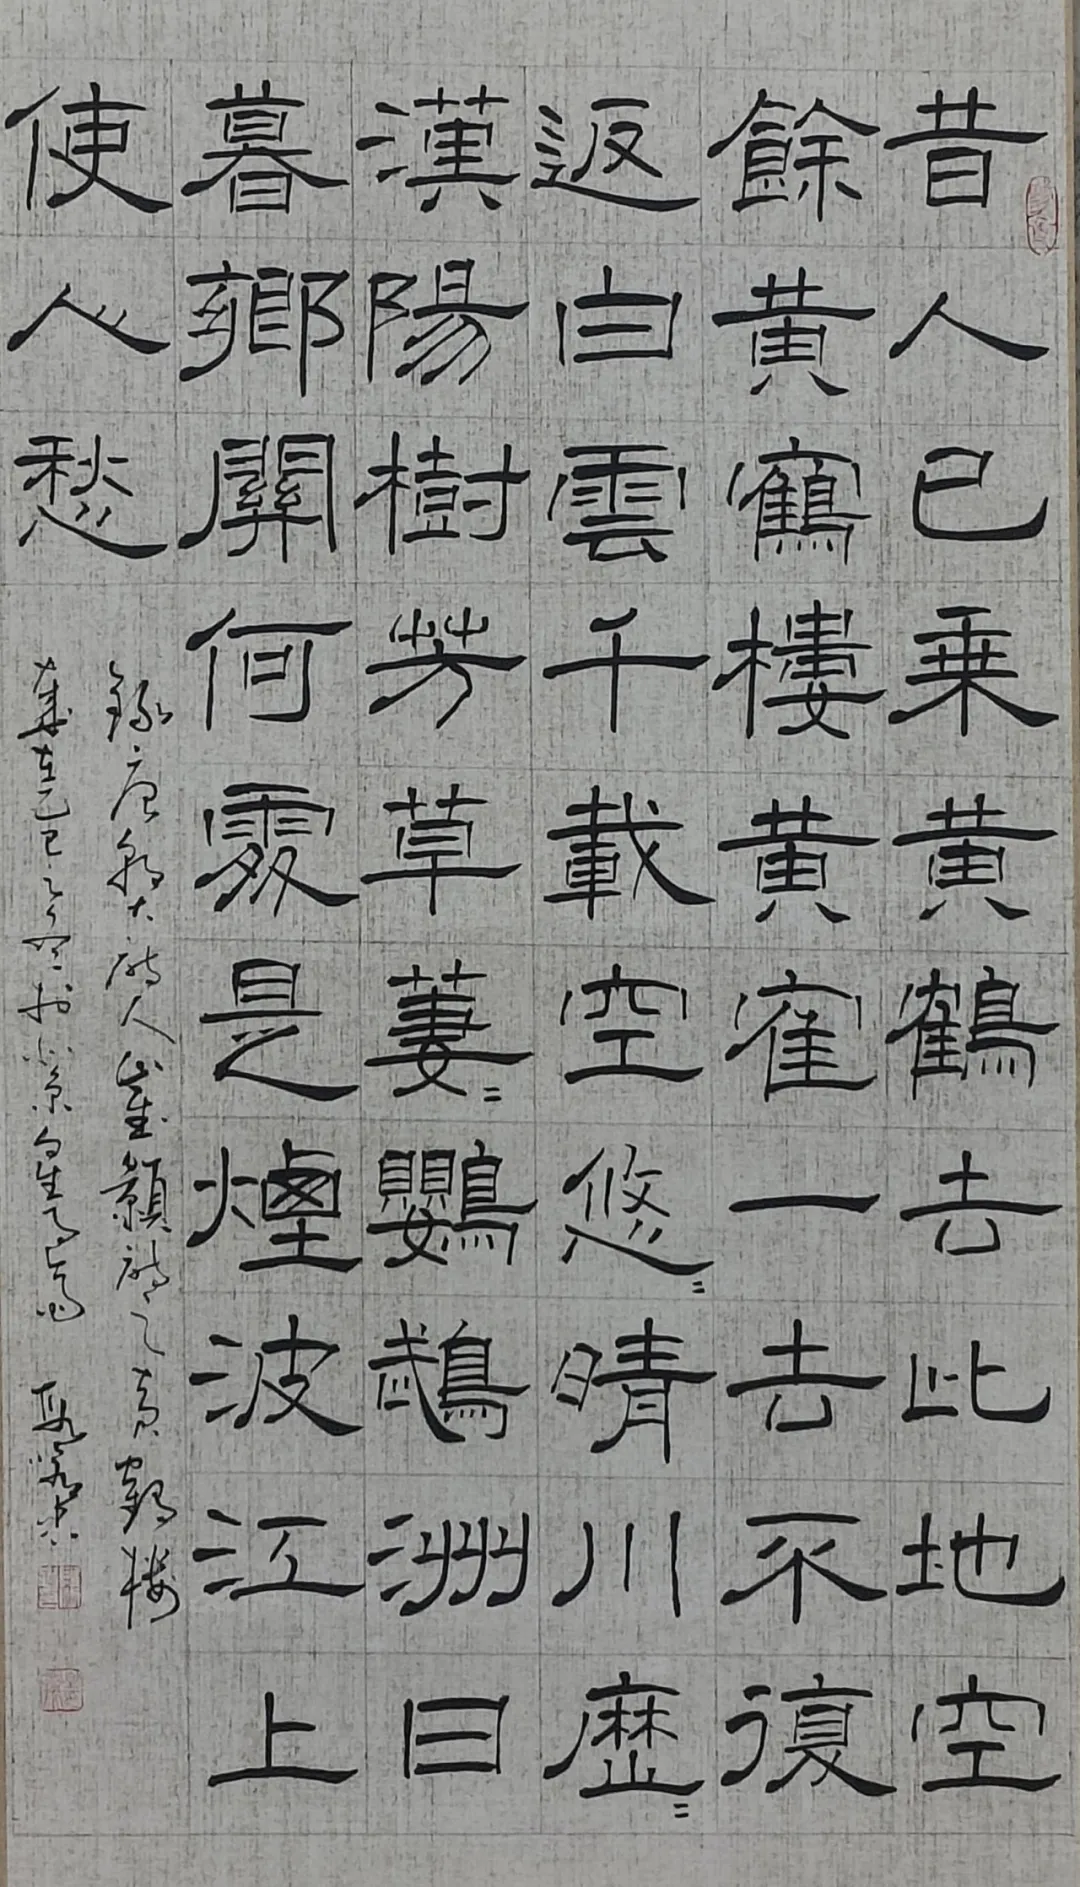 昔人已乘黃鶴去此地空
餘黃鶴樓黃寉一去不復
返白雲千載空悠〻晴川歷〻
漢陽樹芳草萋〻鸚鵡洲日
暮鄉關何處是煙波江上
使人愁
錄唐朝大詩人崔顥詩之黃鶴樓
歲在乙巳之